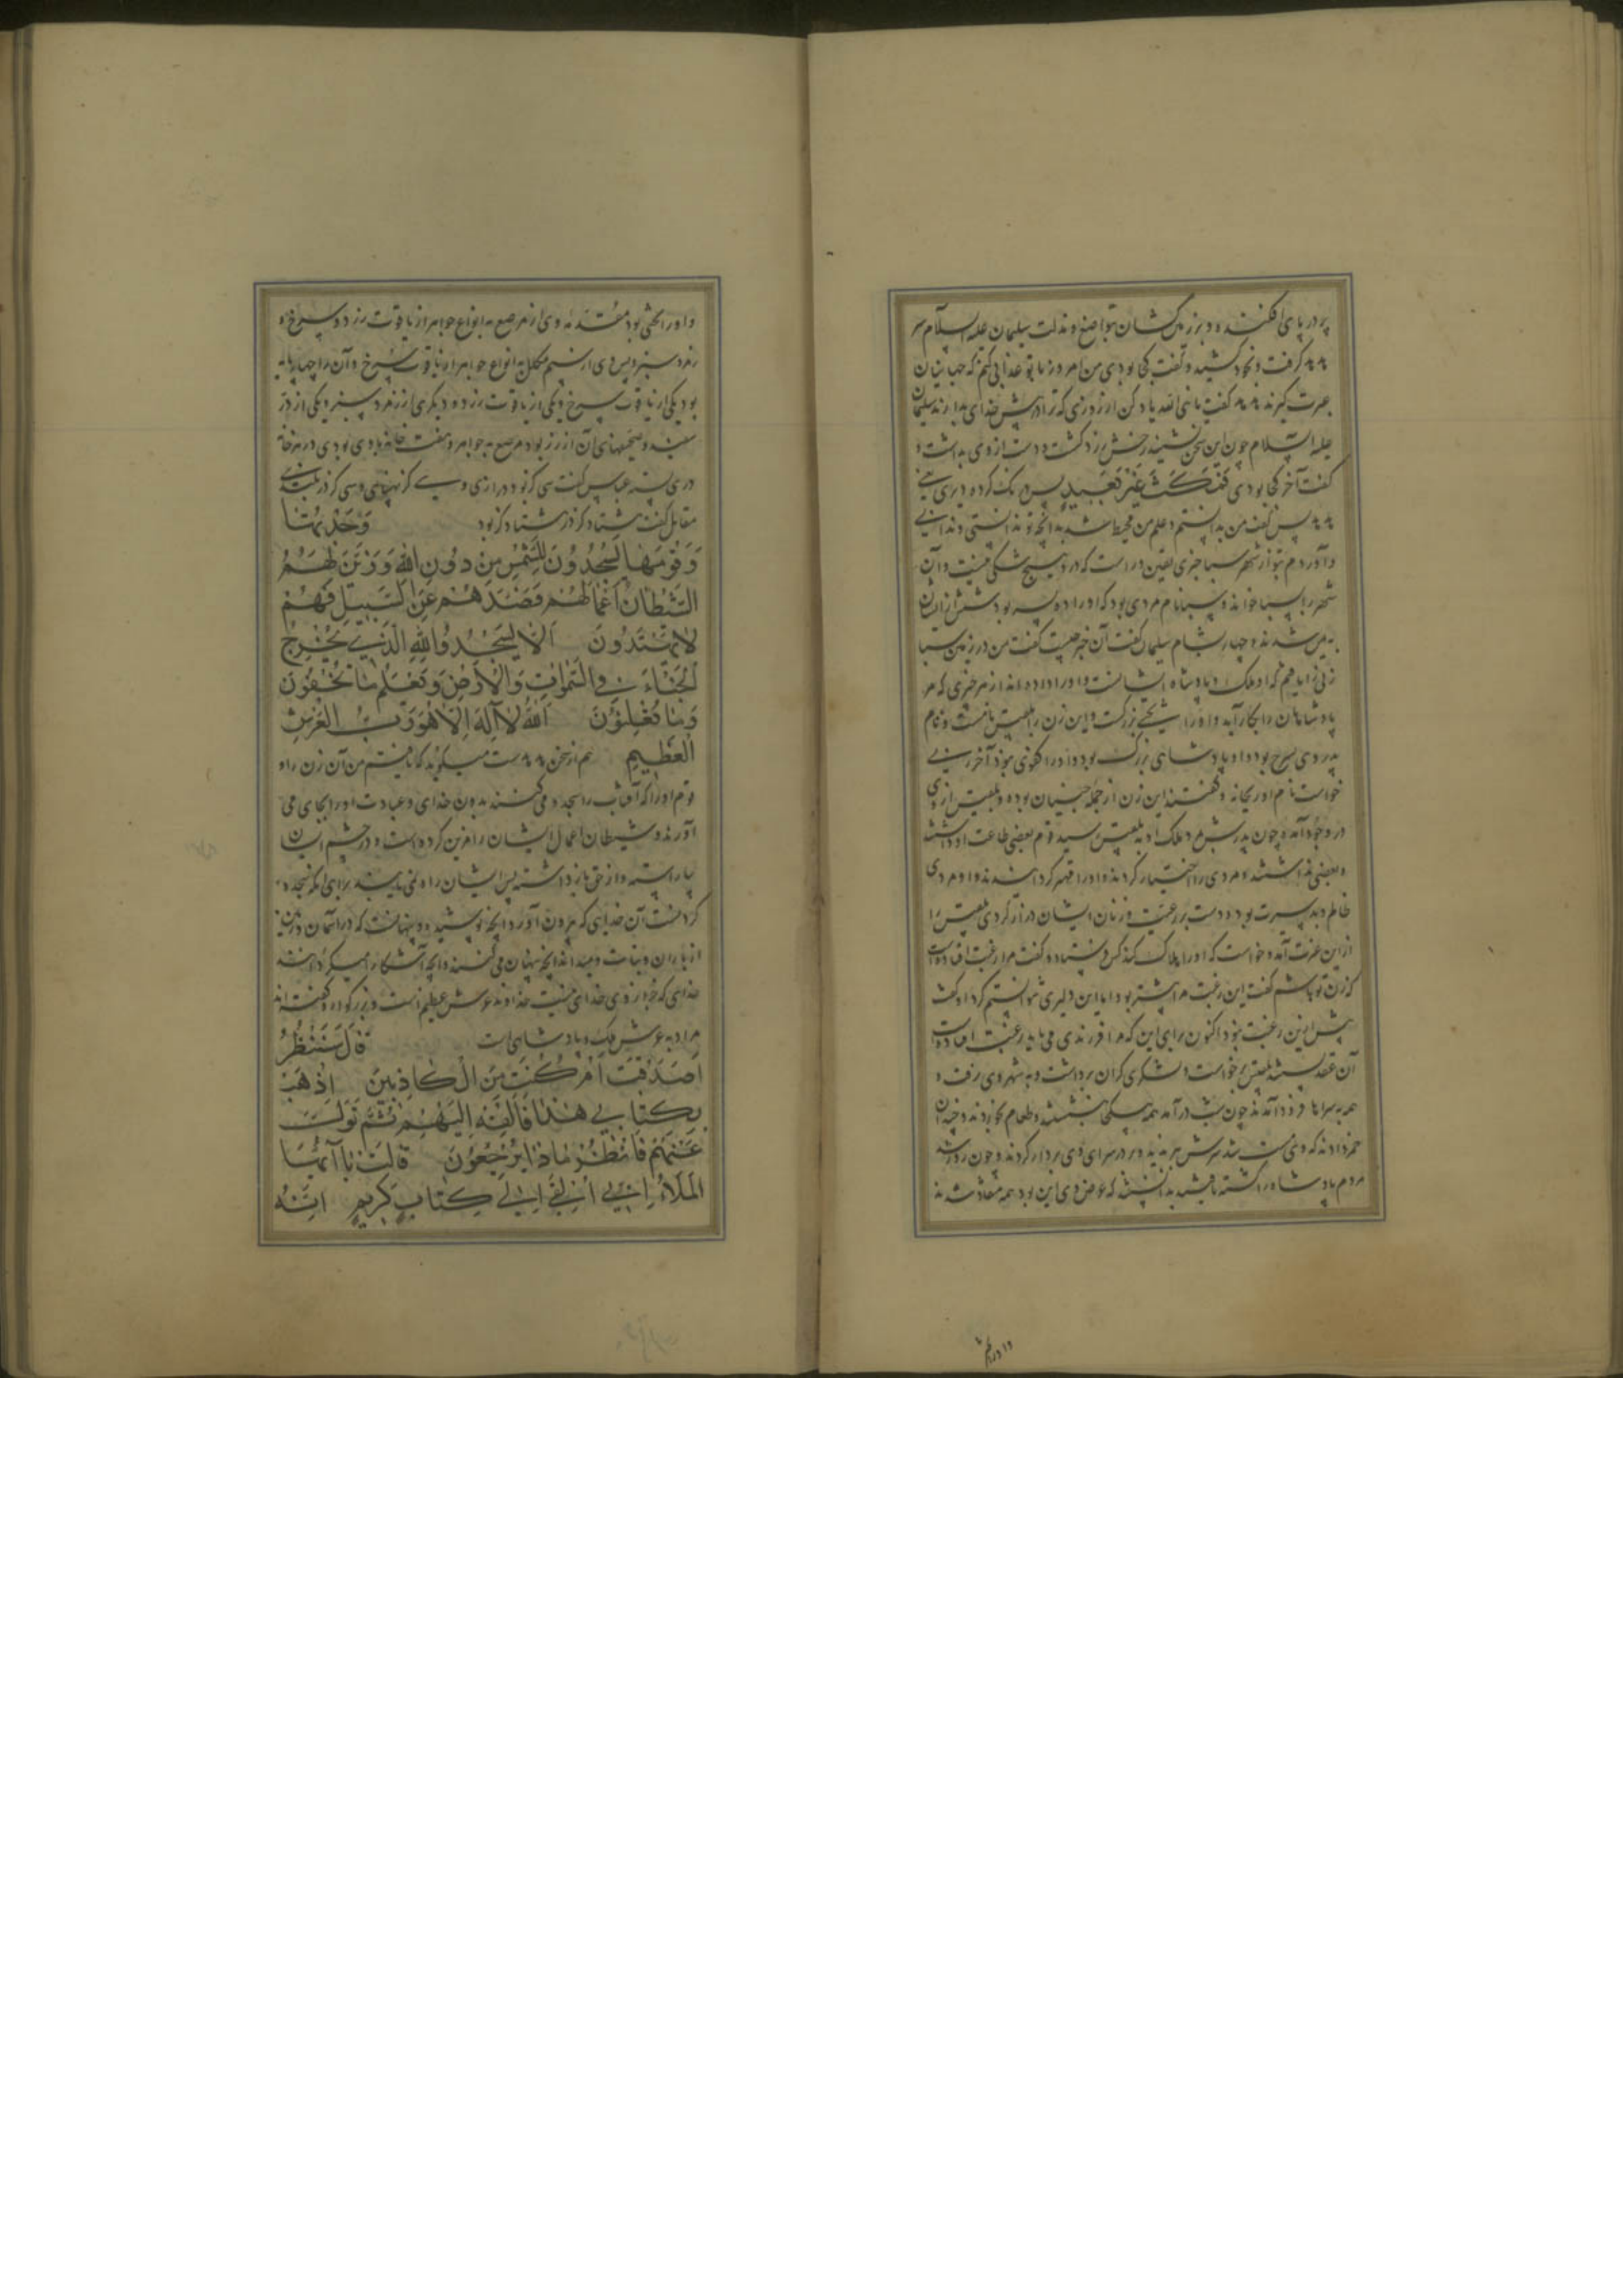 پر در پای افکنند و در زمین کشان بتواضع و مذلت سلیمان علیه السلام سر
هدهد گرفت و بخود کشید و گفت کجا بودی من امروز با تو عذابی کنم که جهانیان
عبرت گیرند هدهد گفت یا نبی الله یاد کن از روزی که ترا در پیش خدای بدارند سلیمان
علیه السلام چون این سخن شنید رخش زرد گشت و دست از وی بداشت و
گفت آخر کجا بودی فَمَكَثَ غَيْرَ بَعِيدٍ پس درنگ کرد نه دیری یعنی
هدهد پس گفت من بدانستم و علم من محیط شد بدانچه تو ندانستی و ندانی
و آوردم بتو از شهر سبا خبری یقین راست که در و هیچ شکی نیست و آن
شهر را سبا خوانند و سبا نام مردی بود که او را ده پسر بود شش از ایشان
به یمن شدند و چهار بشام سلیمان گفت آن خبر چیست گفت من در زمین سبا
زنی را یافتم که او ملک و پادشاه ایشانست و او را داده اند از هر چیزی که مر
پادشاهان را بکار آید و او را تختی بزرگست و این زن را بلقیس نام است و نام
پدر وی سرح بود و او پادشاهی بزرگ بود و او را کفوی نبود آخر زنی
خواست نام او ریحانه و گفتند این زن از جمله جنیان بوده و بلقیس از وی
در وجود آمد و چون پدرش مرد ملک او به بلقیس رسید قوم بعضی طاعت او داشتند
و بعضی نداشتند و مردی را اختیار کردند و او را قهر کرد ایشان را و او مردی
ظالم و بد سیرت بود و دست بر رعیت و زنان ایشان دراز کردی بلقیس را
از این غیرت آمد و خواست که او را هلاک کند کس فرستاد و گفت مرا رغبت افتاده است
که زن تو باشم گفت این رغبت مرا پیشتر بود اما این دلیری نتوانستم کرد او گفت
پیش از این رغبت نبود اکنون برای این که مرا فرزندی می باید رغبت افتاده است
آن عقد بسته شد بلقیس برخواست و لشکری گران برداشت و به شهر وی رفت و
همه به سراها فرود آمدند چون شب درآمد همه بیکجا بنشستند و طعام بخوردند و چندان
خمر دادند که وی مست شد سرش ببرید و بر در سرای وی بر دار کردند و چون روز شد
مردم پادشاه را کشته یافتند بدانستند که غرض وی این بود همه منقاد شدند
و او را تختی بود مقدمه وی از زر مرصع به انواع جواهر از یاقوت زرد و سرخ و
زمرد سبز و پس وی از سیم مکلل به انواع جواهر از یاقوت سرخ و آن را چهار پایه
بود یکی از یاقوت سرخ و یکی از یاقوت زرد و دیگری از زمرد سبز و یکی از در
سفید و صفحهای آن از زر بود مرصع به جواهر و هفت خانه بر وی بودی در هر خانه
دری بسته عباس گفت سی گز بود درازی و سی گز پهنایی و سی گز در بلندی
مقاتل گفت هشتاد گز در هشتاد گز بود وَجَدْتُهَا
وَقَوْمَهَا يَسْجُدُونَ لِلشَّمْسِ مِنْ دُونِ اللهِ وَزَيَّنَ لَهُمُ
الشَّيْطَانُ أَعْمَالَهُمْ فَصَدَّهُمْ عَنِ السَّبِيلِ فَهُمْ
لَا يَهْتَدُونَ أَلَّا يَسْجُدُوا لِلهِ الَّذِي يُخْرِجُ
الْخَبْاءَ فِي السَّمٰوَاتِ وَالْأَرْضِ وَيَعْلَمُ مَا تُخْفُونَ
وَمَا تُعْلِنُونَ اللهُ لَا إِلَهَ إِلَّا هُوَ رَبُّ الْعَرْشِ
الْعَظِيمِ هم از سخن هدهد ست میگوید که یافتم من آن زن را و
قوم او را که آفتاب را سجده می کنند بدون خدای و عبادت او را بجای می
آورند و شیطان اعمال ایشان را مزین کرده است و در چشم ایشان
بیاراسته و از حق باز داشته پس ایشان راه نمی یابند برای آنکه سجده
کردنست آن خدایی که بیرون آورد آنچه پوشیده و پنهانست که در آسمان و زمین
از باران و نبات و میداند آنچه پنهان می کنند و آنچه آشکارا میکردانند
خدای که بجز از وی خدای نیست خداوند عرش عظیم است و بزرگوار و گفته اند
مراد به عرش ملک و پادشاهی است قَالَ سَنَنْظُرُ
أَصَدَقْتَ أَمْ كُنْتَ مِنَ الْكَاذِبِينَ اذْهَبْ
بِكِتَابِي هٰذَا فَأَلْقِهْ إِلَيْهِمْ ثُمَّ تَوَلَّ
عَنْهُمْ فَانْظُرْ مَاذَا يَرْجِعُونَ قَالَتْ يَا أَيُّهَا
الْمَلَأُ إِنِّي أُلْقِيَ إِلَيَّ كِتَابٌ كَرِيمٌ إِنَّهُ